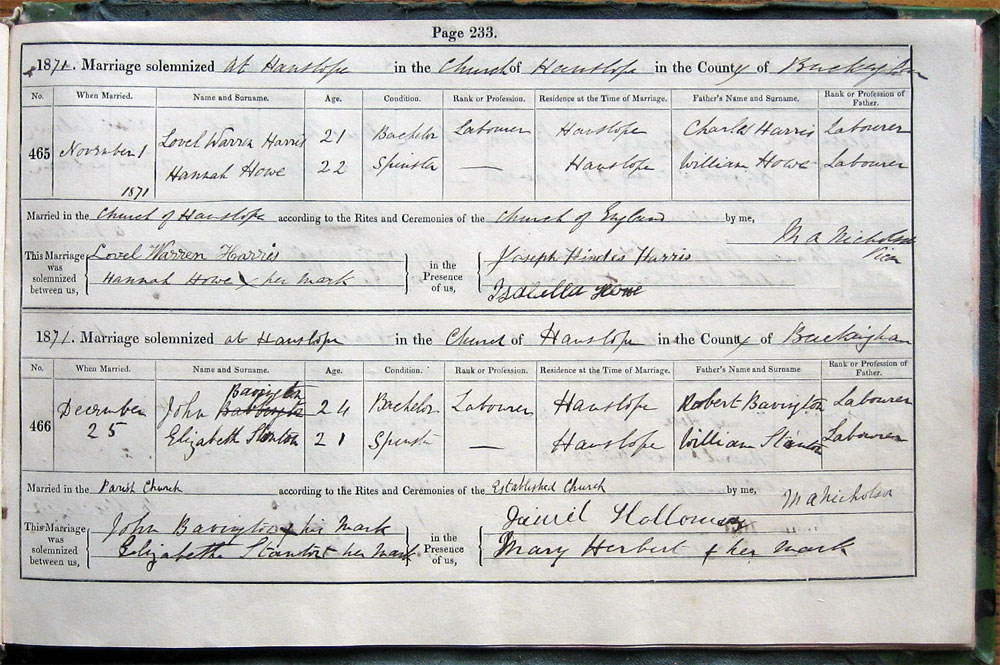 Page 233.
1871. Marriage solemnized at Hanslope in the Church of Hanslope in the County of Buckingham
No. When Married. Name and Surname. Age. Condition. Rank or Profession. Residence at the Time of Marriage. Father's Name and Surname. Rank or Profession of Father.
465 November 1 1871 Lovel Warren Harris 21 Bachelor Labourer Hanslope Charles Harris Labourer
Hannah Howe 22 Spinster — Hanslope William Howe Labourer
Married in the Church of Hanslope according to the Rites and Ceremonies of the Church of England by me,
M A Nicholson
This Marriage was solemnized between us, Lovel Warren Harris in the Presence of us, Joseph Hindes Harris
Hannah Howe x her mark Isabella Howe
1871. Marriage solemnized at Hanslope in the Church of Hanslope in the County of Buckingham
No. When Married. Name and Surname. Age. Condition. Rank or Profession. Residence at the Time of Marriage. Father's Name and Surname Rank or Profession of Father.
466 December 25 John Bavington 24 Bachelor Labourer Hanslope Robert Bavington Labourer
Elizabeth Stanton 21 Spinster — Hanslope William Stanton Labourer
Married in the Parish Church according to the Rites and Ceremonies of the Established Church by me, M A Nicholson
This Marriage was solemnized between us, John Bavington x his mark in the Presence of us, Holloway
Elizabeth Stanton x her mark Mary Herbert x her mark